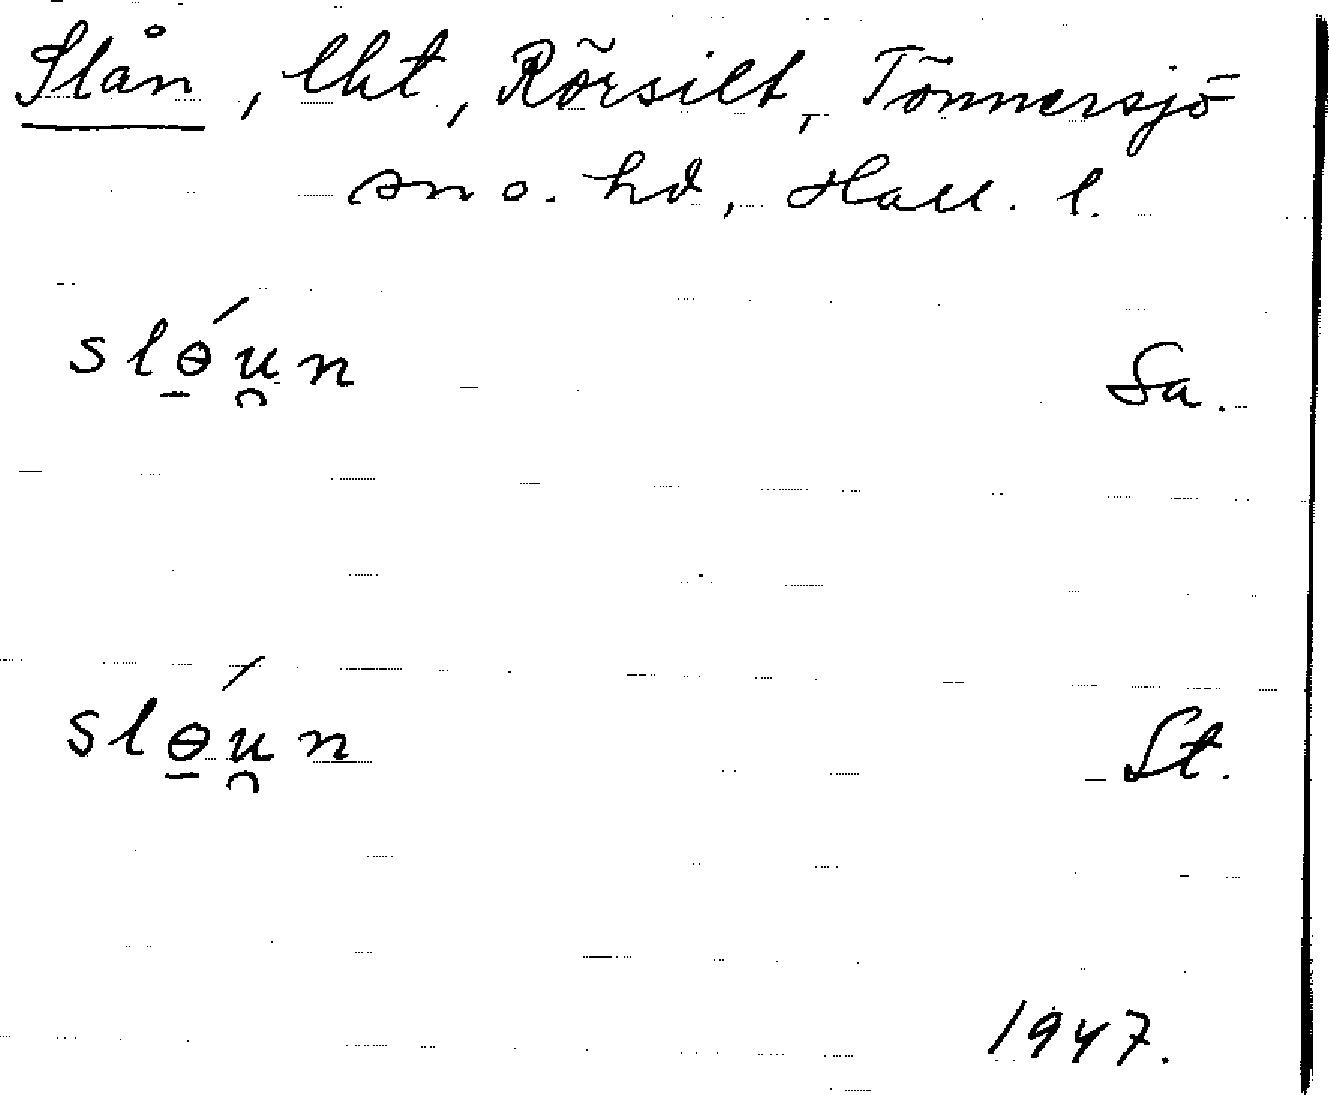 Slån, lht, Rörsilt, Tönnersjö
sn o. hd, Hall. l.
slɵ̠́u̯n Sa.
slɵ̠́u̯n St.
1947.